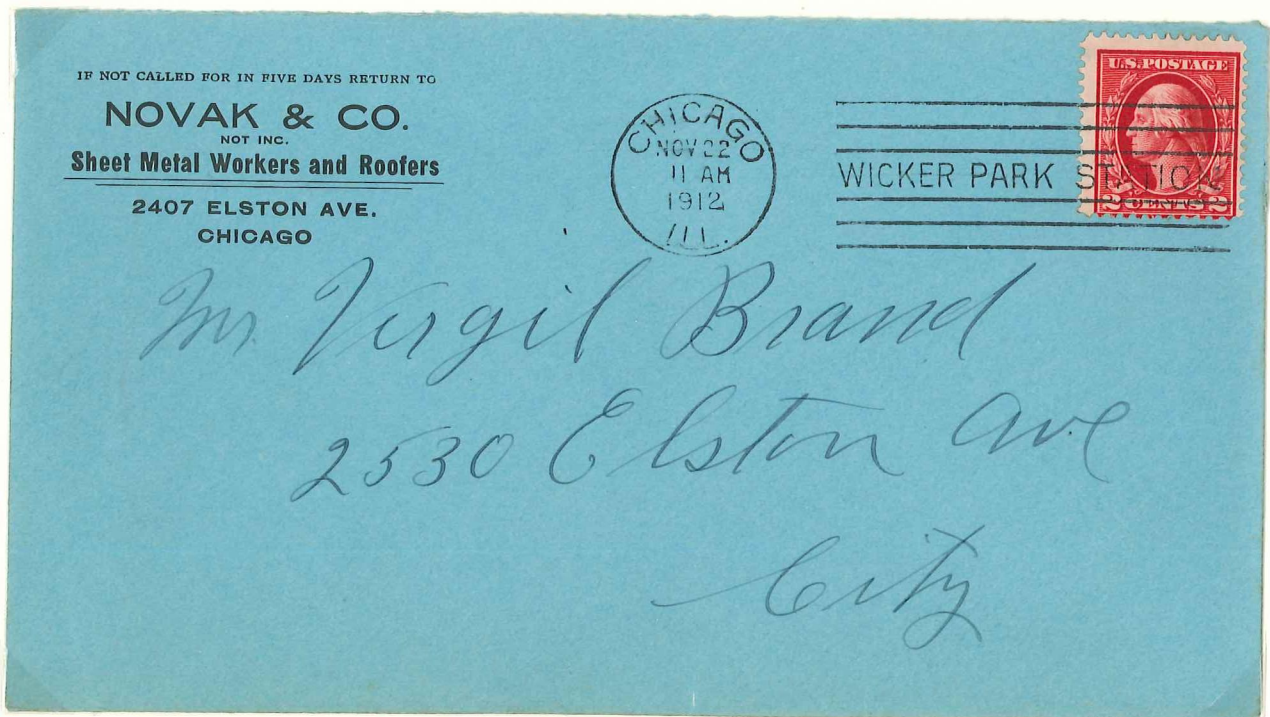 IF NOT CALLED FOR IN FIVE DAYS RETURN TO
NOVAK & CO.
NOT INC.
Sheet Metal Workers and Roofers
2407 ELSTON AVE.
CHICAGO
CHICAGO
NOV 22
11 AM
1912
ILL.
WICKER PARK STATION
U.S. POSTAGE
2 CENTS 2
Mr. Virgil Brand
2530 Elston Ave
City